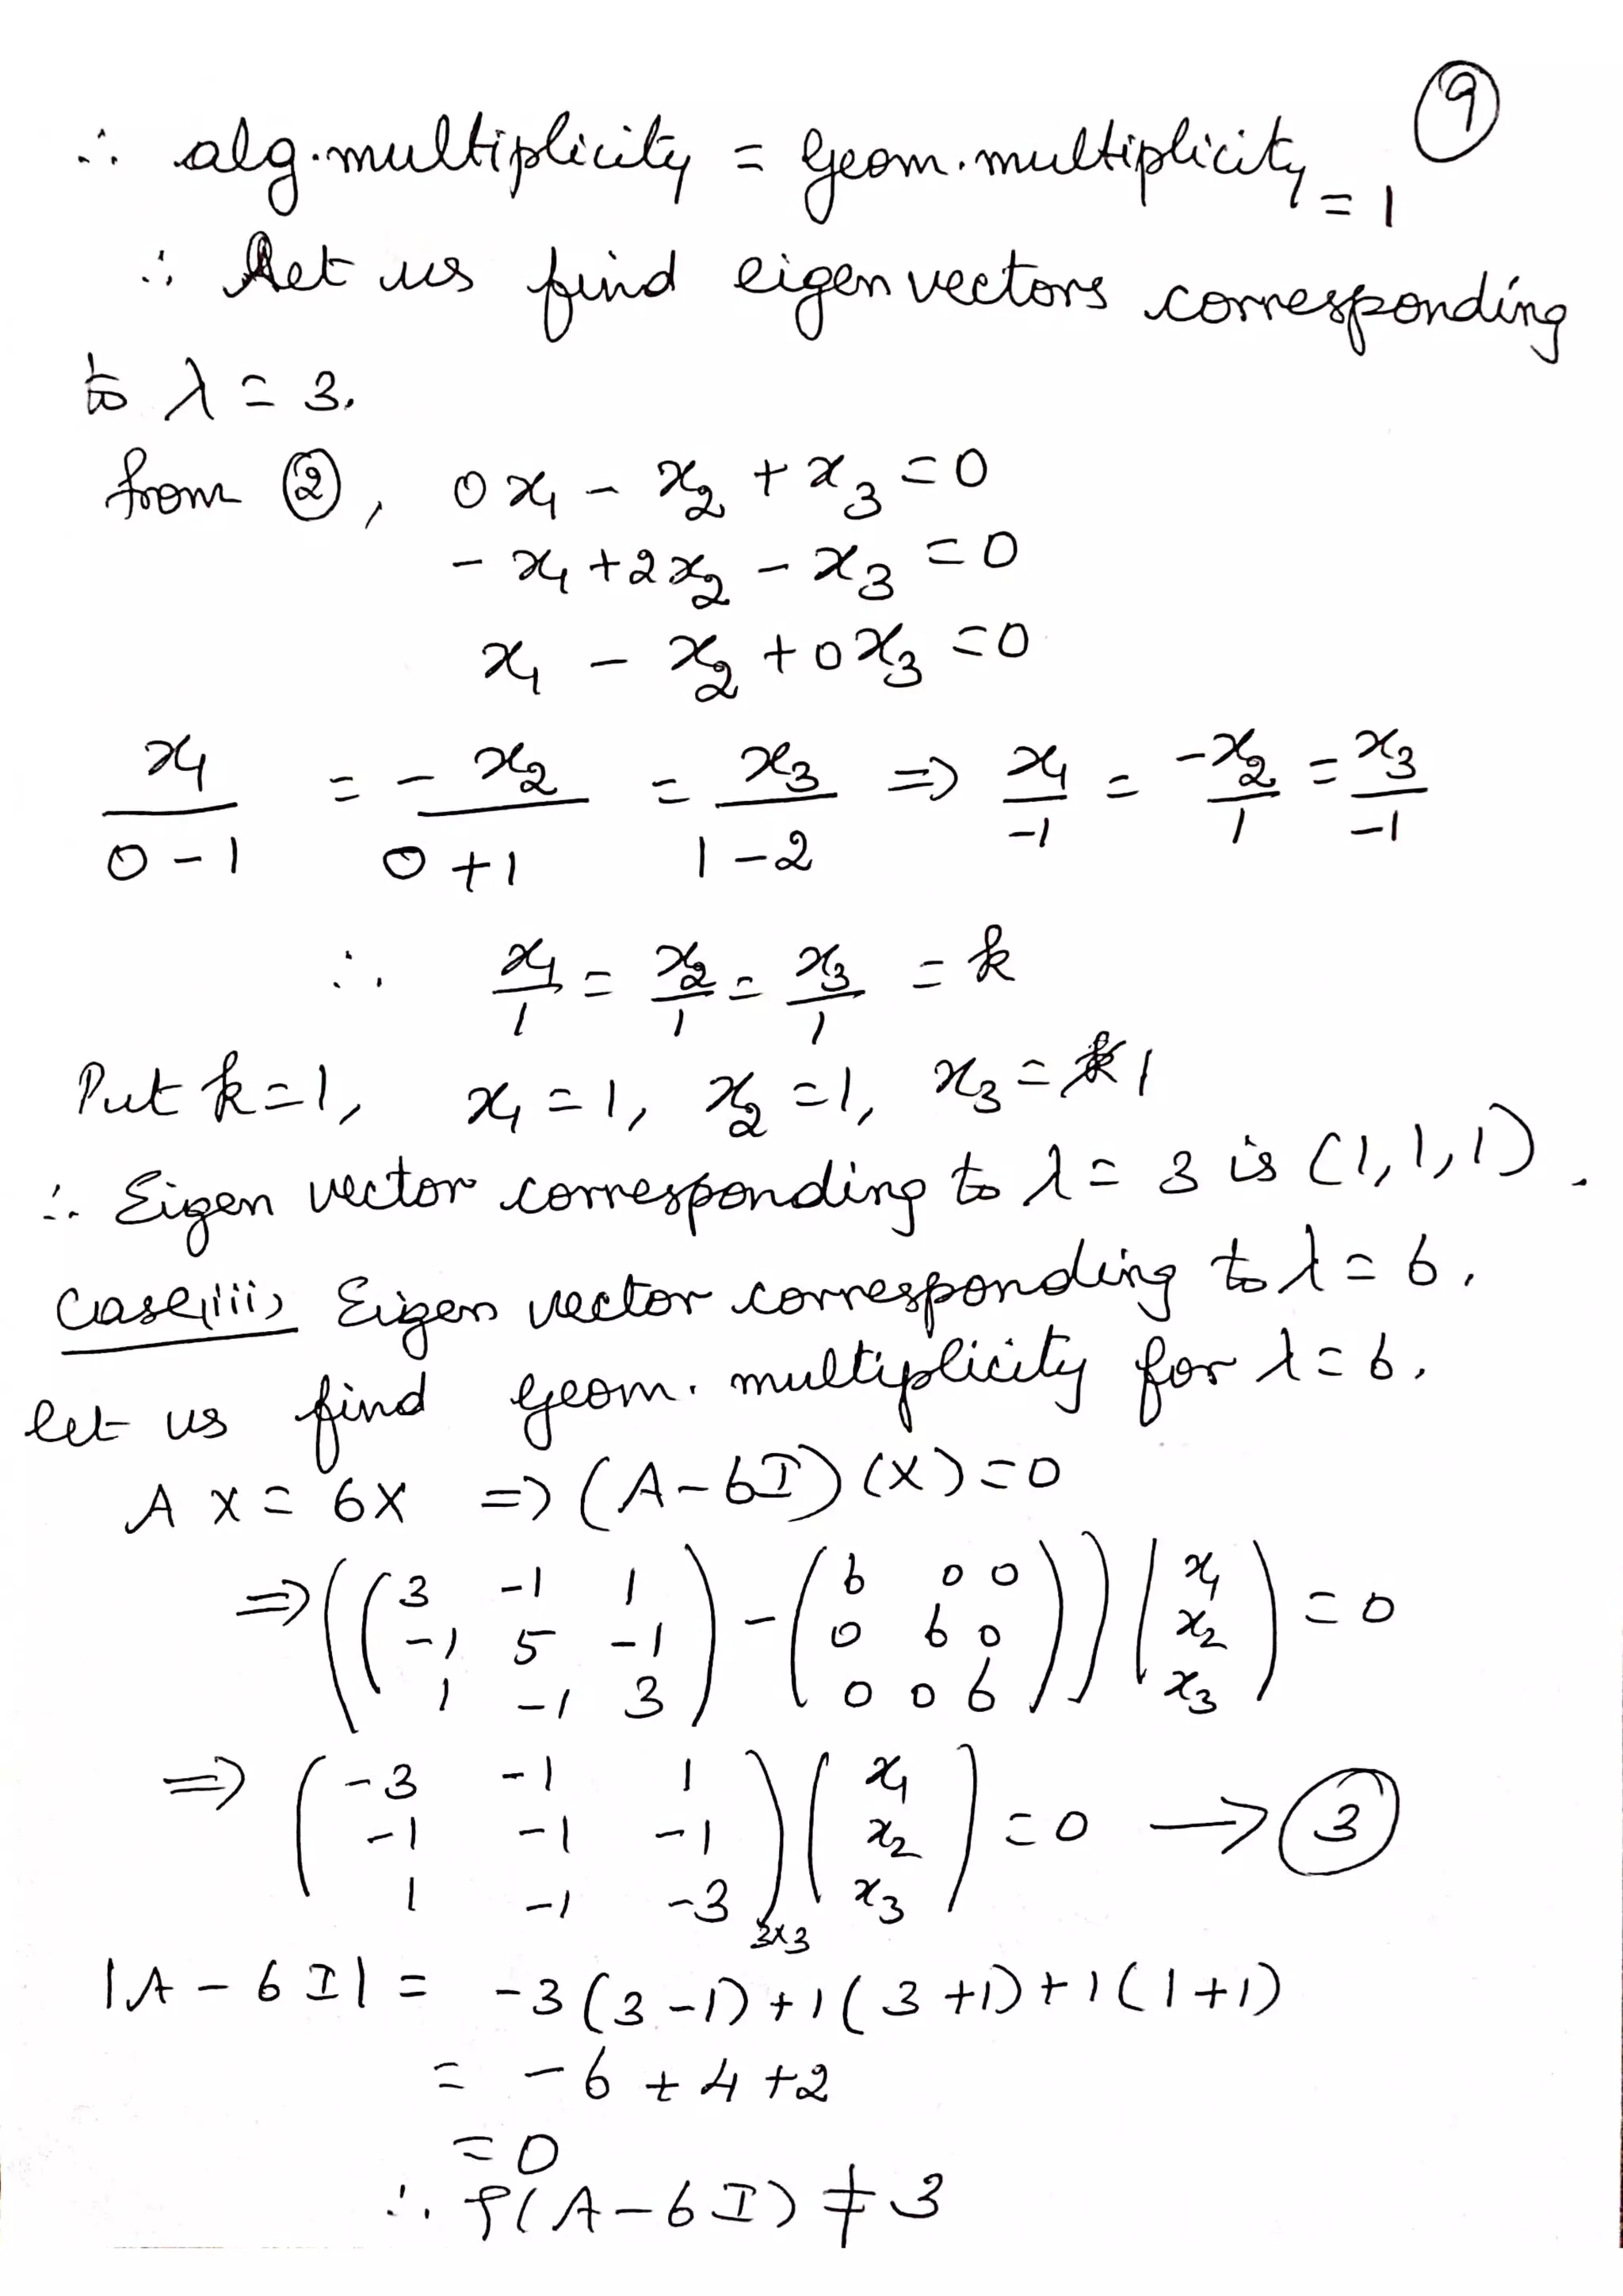 9
∴ alg. multiplicity = geom. multiplicity = 1
∴ Let us find eigen vectors corresponding
to λ = 3.
from ②, 0x₁ - x₂ + x₃ = 0
- x₁ + 2x₂ - x₃ = 0
x₁ - x₂ + 0x₃ = 0
x₁/(0-1) = -x₂/(0+1) = x₃/(1-2) ⇒ x₁/-1 = -x₂/1 = x₃/-1
∴ x₁/1 = x₂/1 = x₃/1 = k
Put k=1, x₁ = 1, x₂ = 1, x₃ = 1
∴ Eigen vector corresponding to λ = 3 is (1,1,1).
Case(iii) Eigen vector corresponding to λ = 6.
let us find geom. multiplicity for λ = 6.
A X = 6X ⇒ (A-6I)(X) = 0
⇒ ((3 -1 1
-1 5 -1
1 -1 3) - (6 0 0
0 6 0
0 0 6)) (x₁
x₂
x₃) = 0
⇒ (-3 -1 1
-1 -1 -1
1 -1 -3)3×3 (x₁
x₂
x₃) = 0 → ③
|A - 6I| = -3(3-1)+1(3+1)+1(1+1)
= -6 + 4 + 2
= 0
∴ ρ(A-6I) ≠ 3